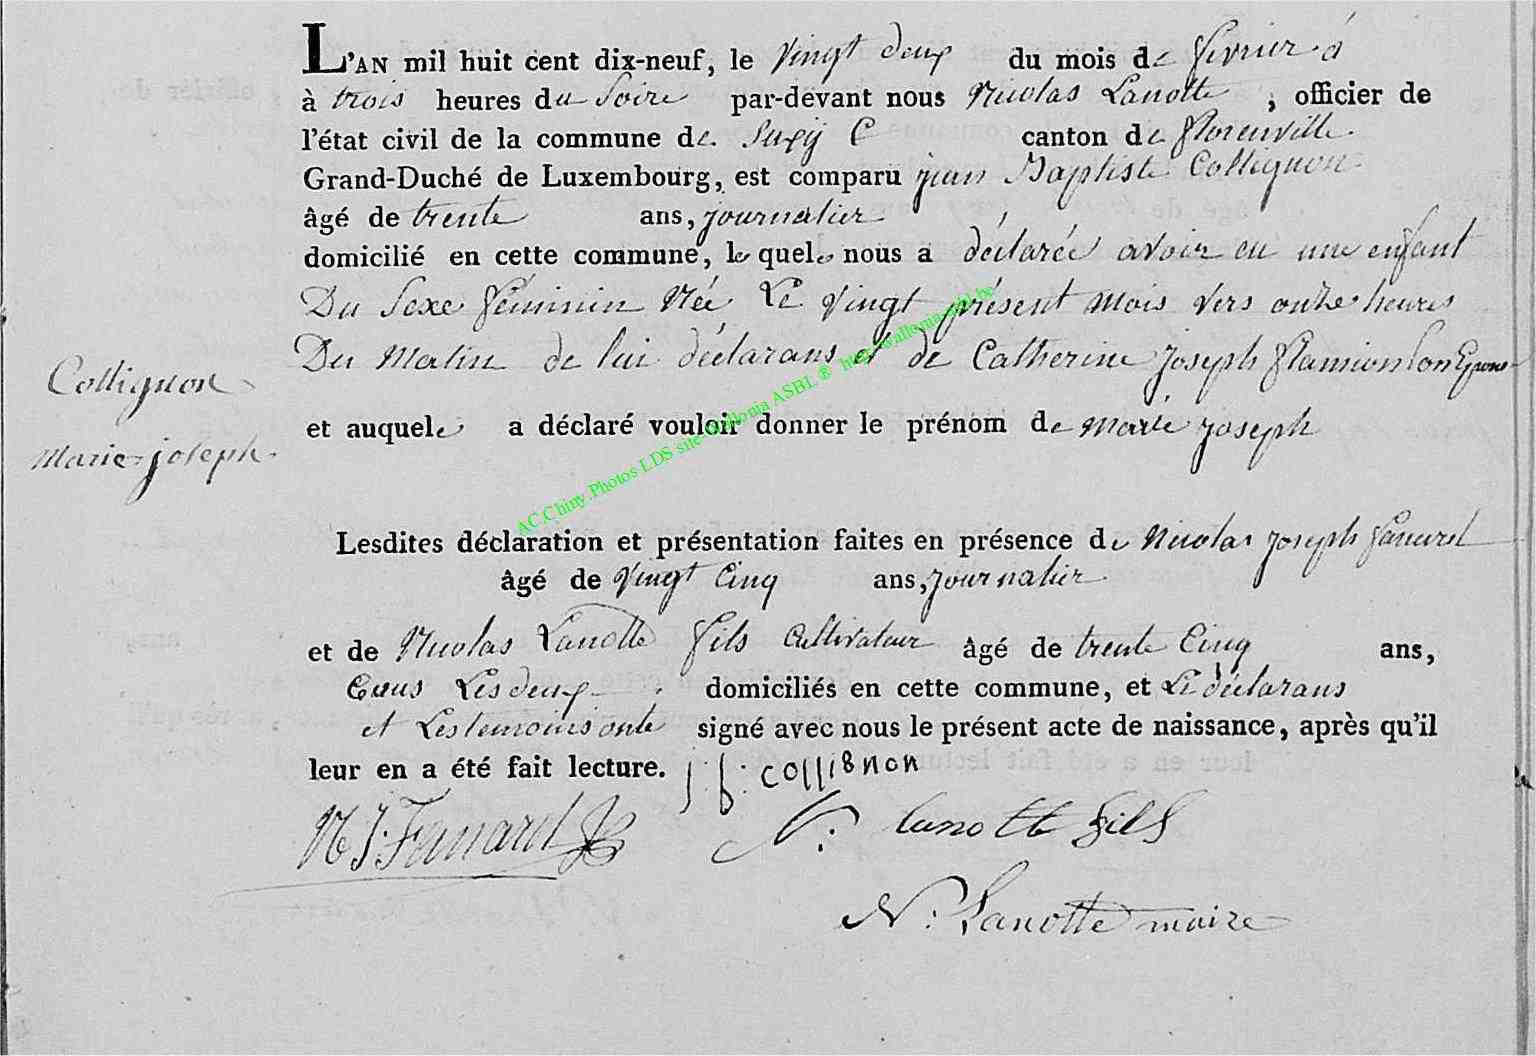 L'AN mil huit cent dix-neuf, le vingt deux du mois de fevrier à
à trois heures du Soire par-devant nous Nicolas Lanotte, officier de
l'état civil de la commune de Suxÿ C canton de florenville
Grand-Duché de Luxembourg, est comparu jean Baptiste Collignon
âgé de trente ans, journalier
domicilié en cette commune, le quele nous a déclarée avoir eu une enfant
Du Sexe féminin Née Le vingt présent mois vers onze heures
Du Matin de lui déclarans et de Catherine joseph flamion son Epouse
Collignon
Marie-joseph.
et auquele a déclaré vouloir donner le prénom de marie joseph
AC.Chiny.Photos LDS site Wallonia ASBL ® http://wallonia-asbl.be
Lesdites déclaration et présentation faites en présence de Nicolas joseph
âgé de vingt Cinq ans, journalier
et de Nicolas Lanotte fils Cultivateur âgé de trente Cinq ans,
Les deux domiciliés en cette commune, et Le déclarans
et Les temoins onte signé avec nous le présent acte de naissance, après qu'il
leur en a été fait lecture. j: b: collignon
N J. Fanard
N: lanotte fils
N: Lanotte maire